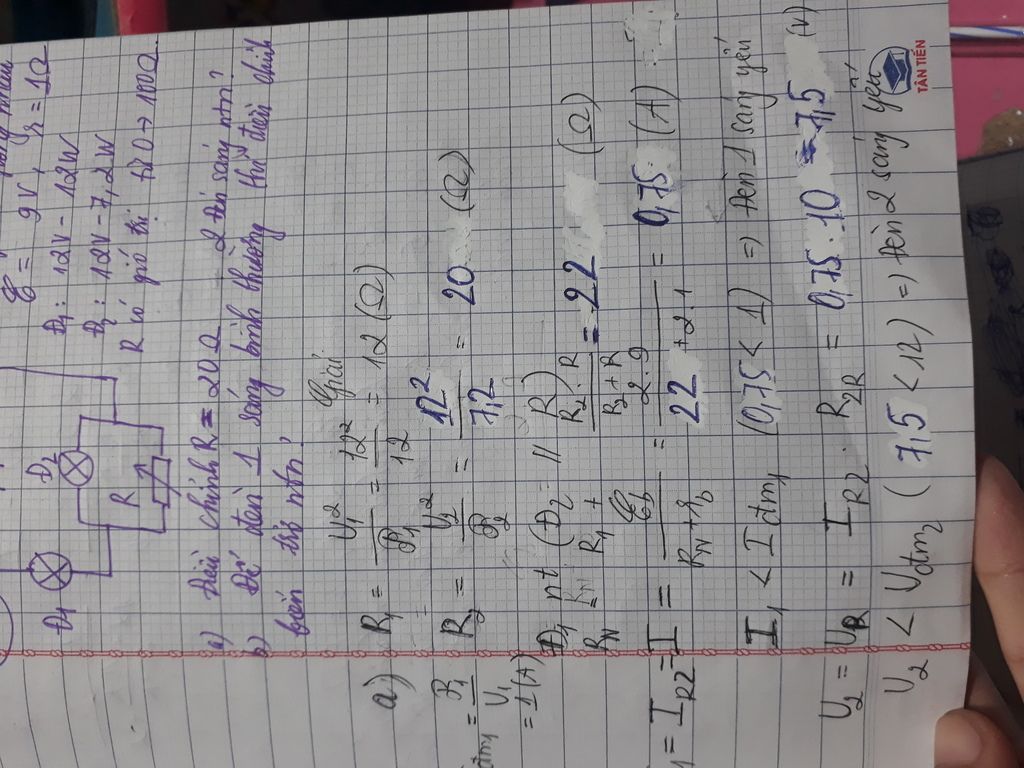 ℰ = 9V, r = 1Ω
Đ1: 12V - 12W
Đ2: 12V - 7,2W
R có giá trị từ 0 → 100Ω
Đ1
Đ2
R
a) Điều chỉnh R = 20Ω 2 đèn sáng ntn?
b) Để đèn 1 sáng bình thường thì điều chỉnh
biến trở ntn?
Giải
a) R1 = U1² / P1 = 12² / 12 = 12 (Ω)
R2 = U2² / P2 = 12² / 7,2 = 20 (Ω)
Iđm1 = P1 / U1
= 1 (A)
Đ1 nt (Đ2 // R)
RN = R1 + R2.R / R2+R = 22 (Ω)
1 = IR2 = I = ℰb / RN+rb = 2.9 / 22+2.1 = 0,75 (A)
I1 < Iđm1 (0,75 < 1) => Đèn 1 sáng yếu
U2 = UR = IR2 . R2R = 0,75.10 = 7,5 (V)
U2 < Uđm2 (7,5 < 12) => Đèn 2 sáng yếu
TÂN TIẾN